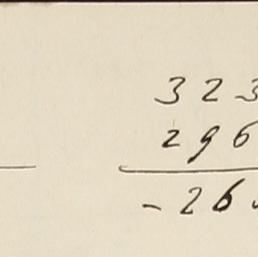 323
296
-26